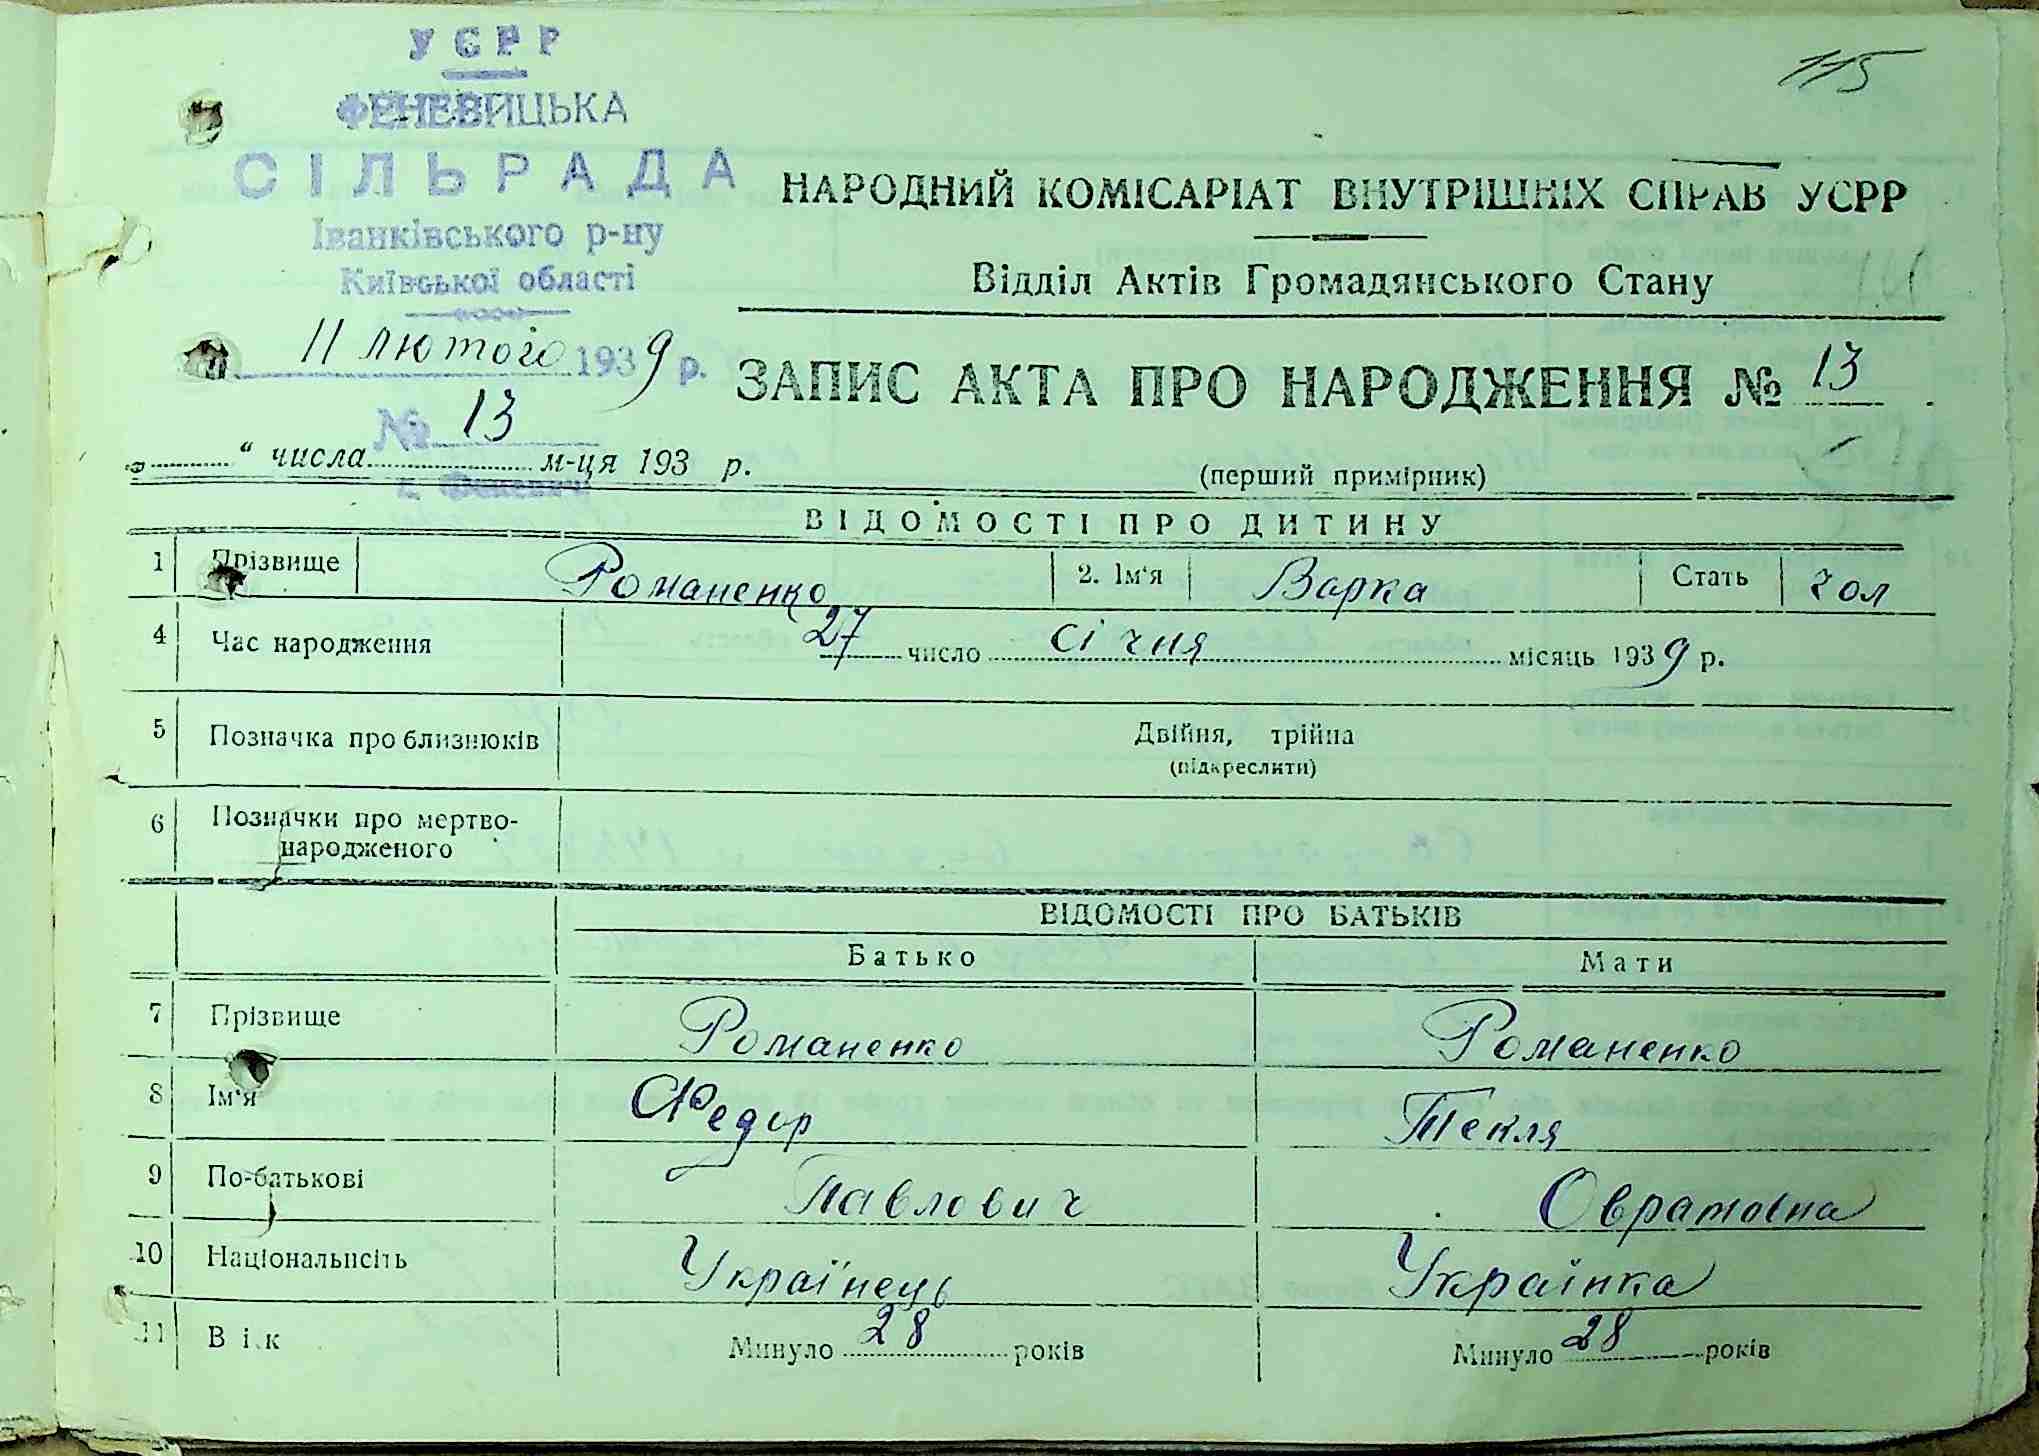 115
УСРР
ФЕНЕВИЦЬКА
СІЛЬРАДА
Іванківського р-ну
Київської області
11 лютого 1939 р.
№ 13
с. Феневичі
НАРОДНИЙ КОМІСАРІАТ ВНУТРІШНІХ СПРАВ УСРР
Відділ Актів Громадянського Стану
ЗАПИС АКТА ПРО НАРОДЖЕННЯ № 13
" числа м-ця 193 р.
(перший примірник)
ВІДОМОСТІ ПРО ДИТИНУ
1 Прізвище Романенко 2. Ім'я Варка Стать чол
4 Час народження 27 число січня місяць 1939 р.
5 Позначка про близнюків Двійня, трійна
(підкреслити)
6 Позначки про мертво-
народженого
ВІДОМОСТІ ПРО БАТЬКІВ
Батько Мати
7 Прізвище Романенко Романенко
8 Ім'я Федор Текля
9 По-батькові Павлович Оврамовна
10 Національність Українець Українка
11 Вік Минуло 28 років Минуло 28 років